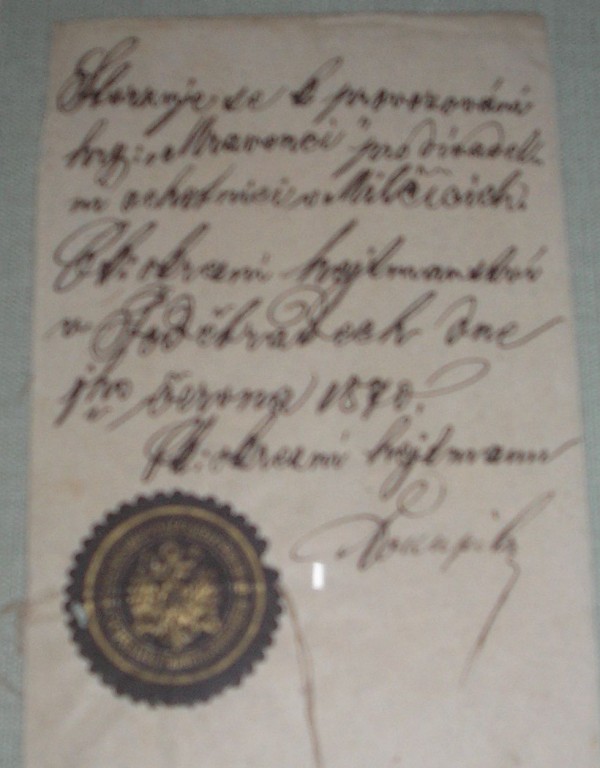 se k provozování
hry: „Mravenci" pro divadel-
ní ochotníci v Milčicích.
C. k. okresní hejtmanství
v Poděbradech dne
června 1870.
C. k. okresní hejtmann